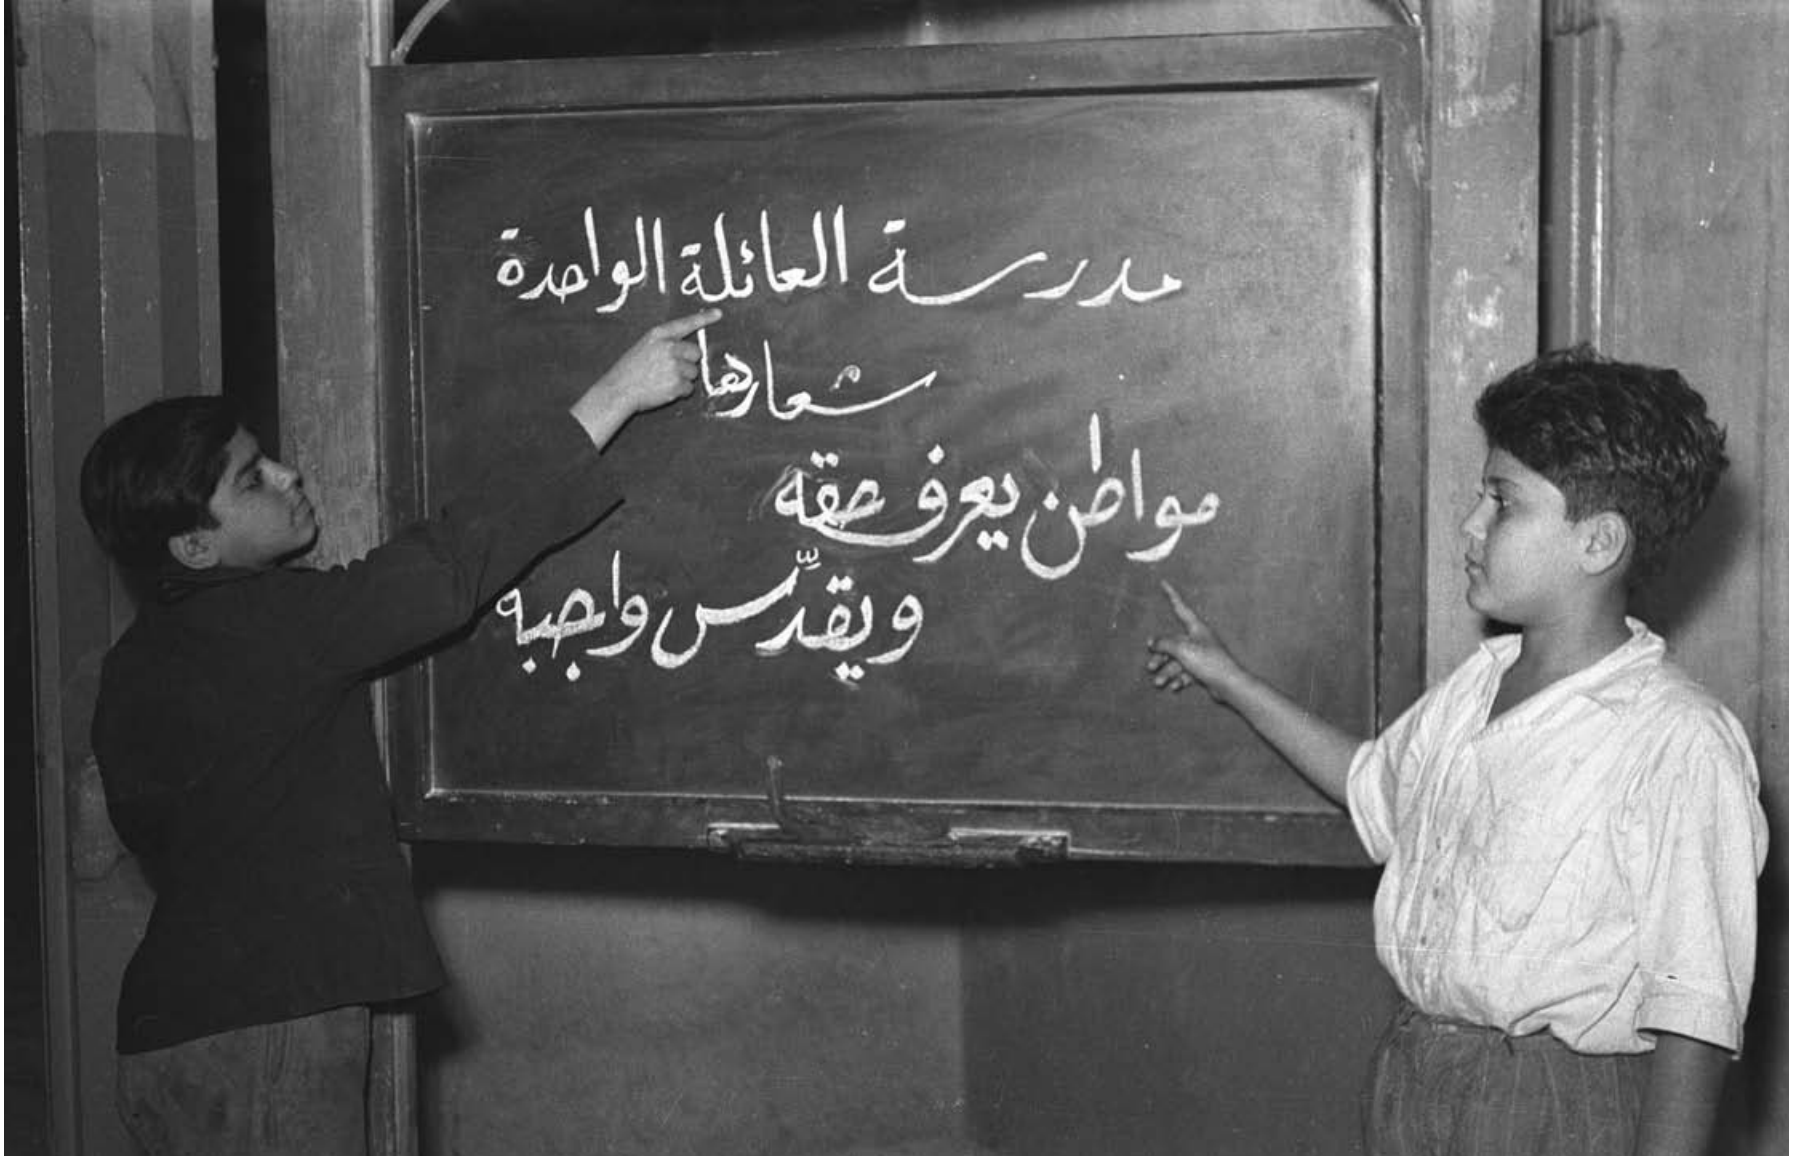 مدرسة العائلة الواحدة
شعارها
مواطن يعرف حقه
ويقدّس واجبه